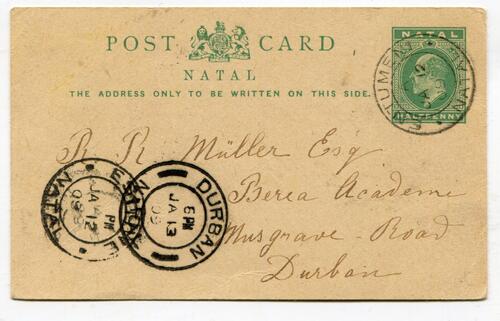 POST CARD
NATAL
THE ADDRESS ONLY TO BE WRITTEN ON THIS SIDE.
NATAL
HALFPENNY
NATAL
R. R. Müller Esq.
Berea Academe
Musgrave Road
Durban
NATAL
PM
JA 12
09
DURBAN
6 PM
JA 13
09